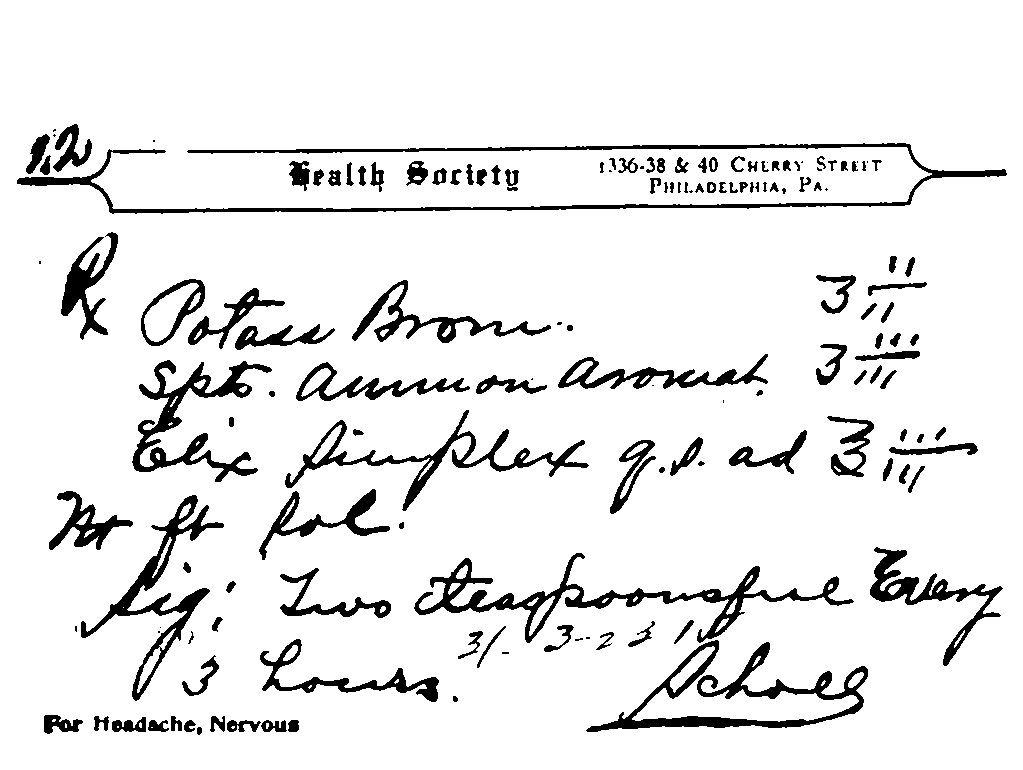 12
Health Society 1336-38 & 40 CHERRY STREET
PHILADELPHIA, PA.
℞ Potass Brom. ʒ ii
Spts. Ammon Aromat. ʒ iii
Elix Simplex q.s. ad ℥ iii
Mt ft sol.
Sig: Two teaspoonsful Every
3 hours.
For Headache, Nervous